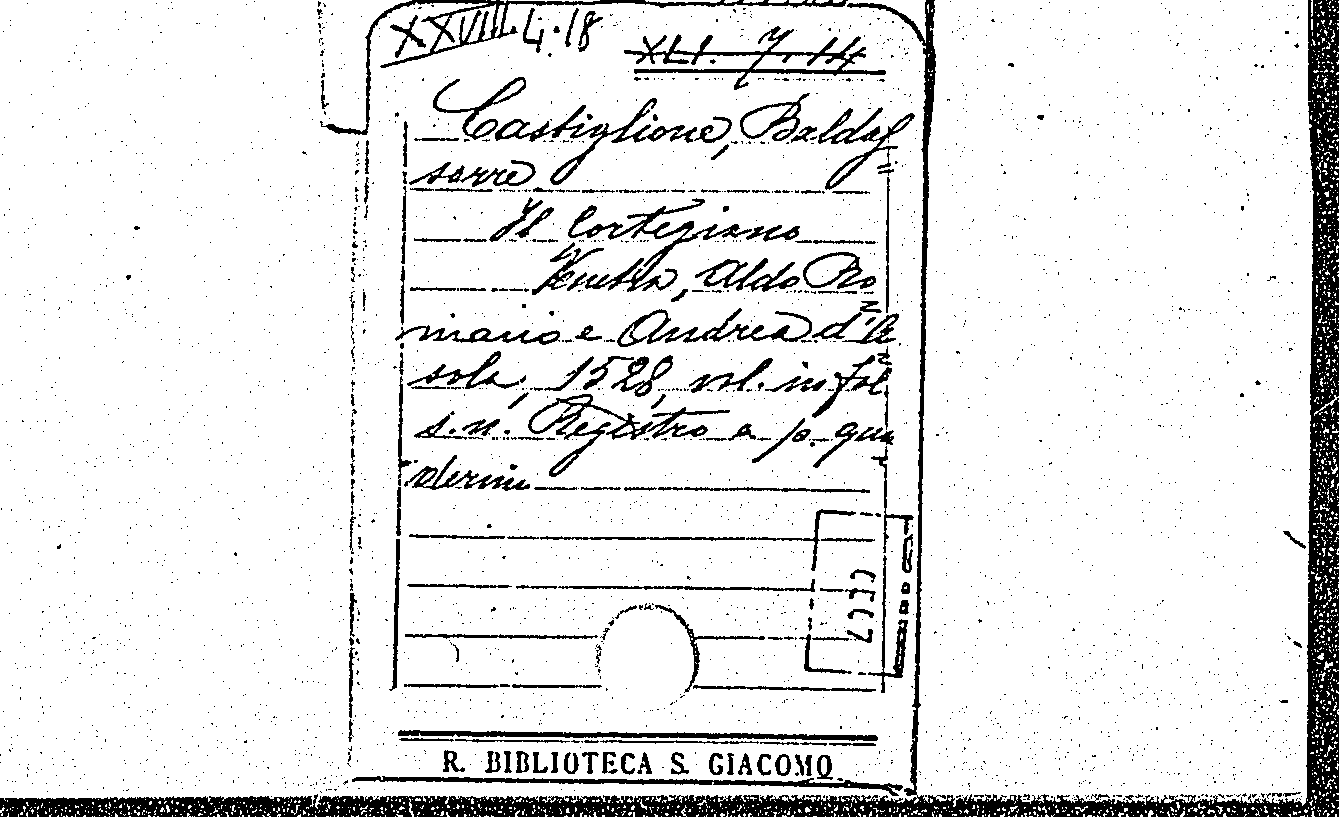 XXVIII.4.18
XLI. 7. 14
Castiglione, Baldas=
sarre
Il Cortegiano
Venetia, Aldo Ro=
mano e Andrea d'A=
sola, 1528, vol. in fol.
s.n. Registro a p. qua
derni
R. BIBLIOTECA S. GIACOMO